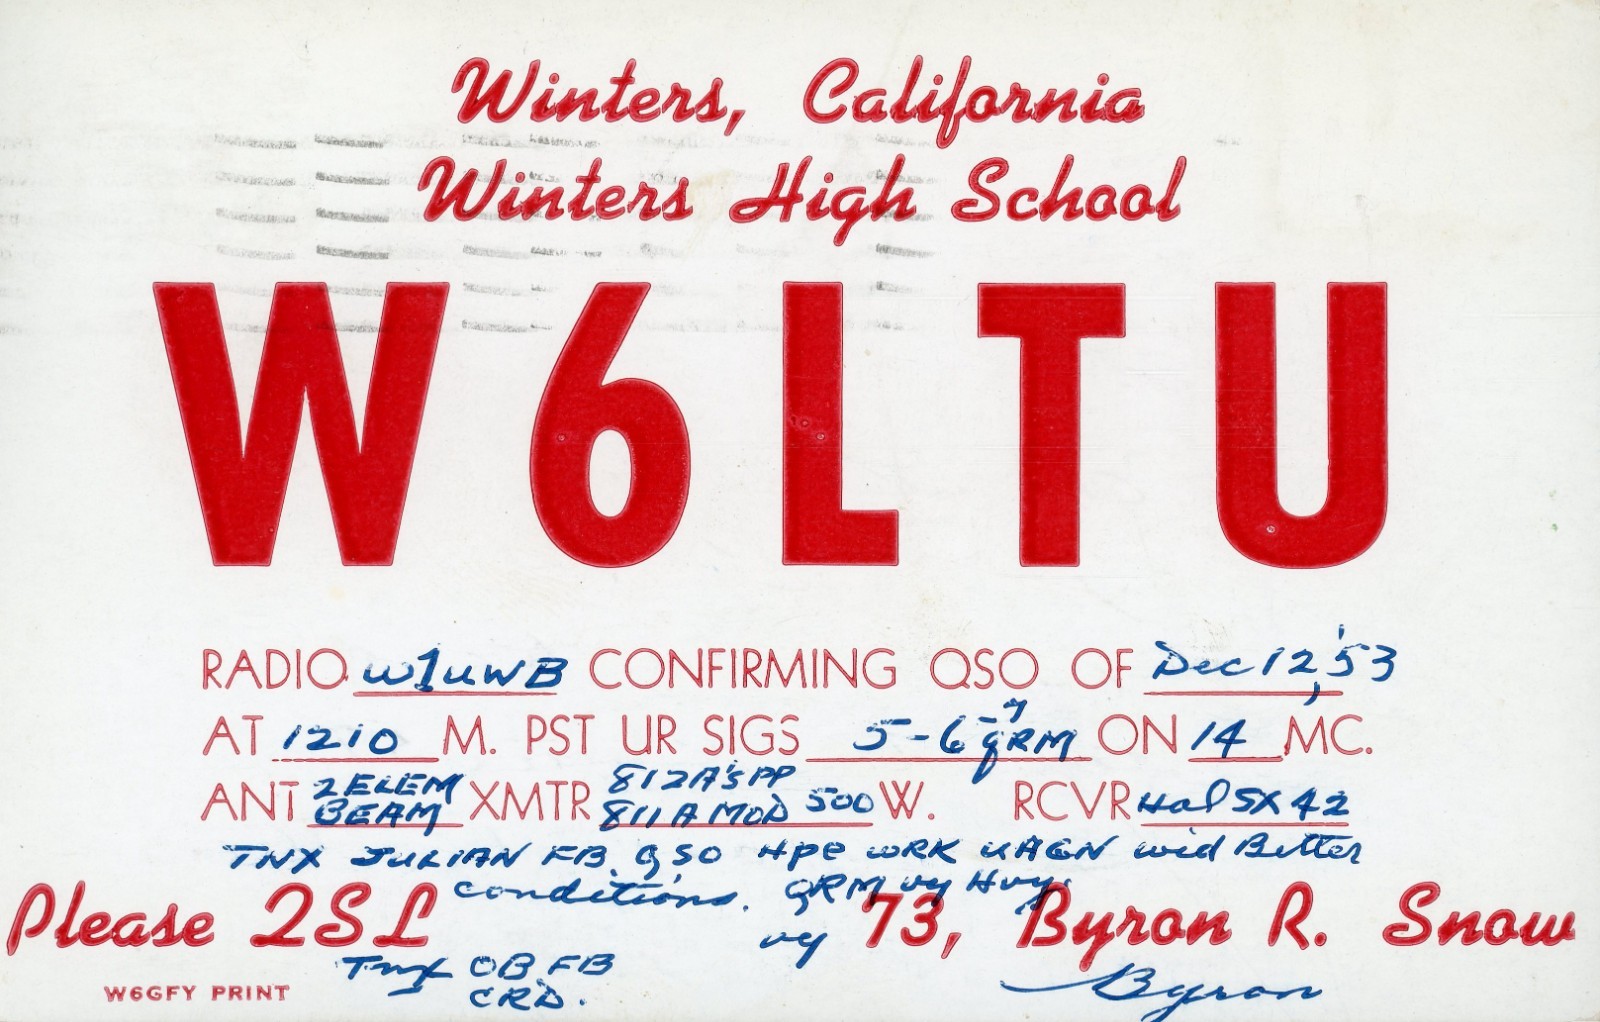 Winters, California
Winters High School
W6LTU
RADIO W1UWB CONFIRMING QSO OF Dec 12, '53
AT 1210 M. PST UR SIGS 5-6-7 QRM ON 14 MC.
ANT 2 ELEM BEAM XMTR 812A's PP 811A MOD 500 W. RCVR Hal SX 42
TNX JULIAN FB QSO HPE WRK UAGN wid Better
conditions. QRM vy Hvy.
Please QSL vy 73, Byron R. Snow
Tnx OB FB
CRD.
Byron
W6GFY PRINT